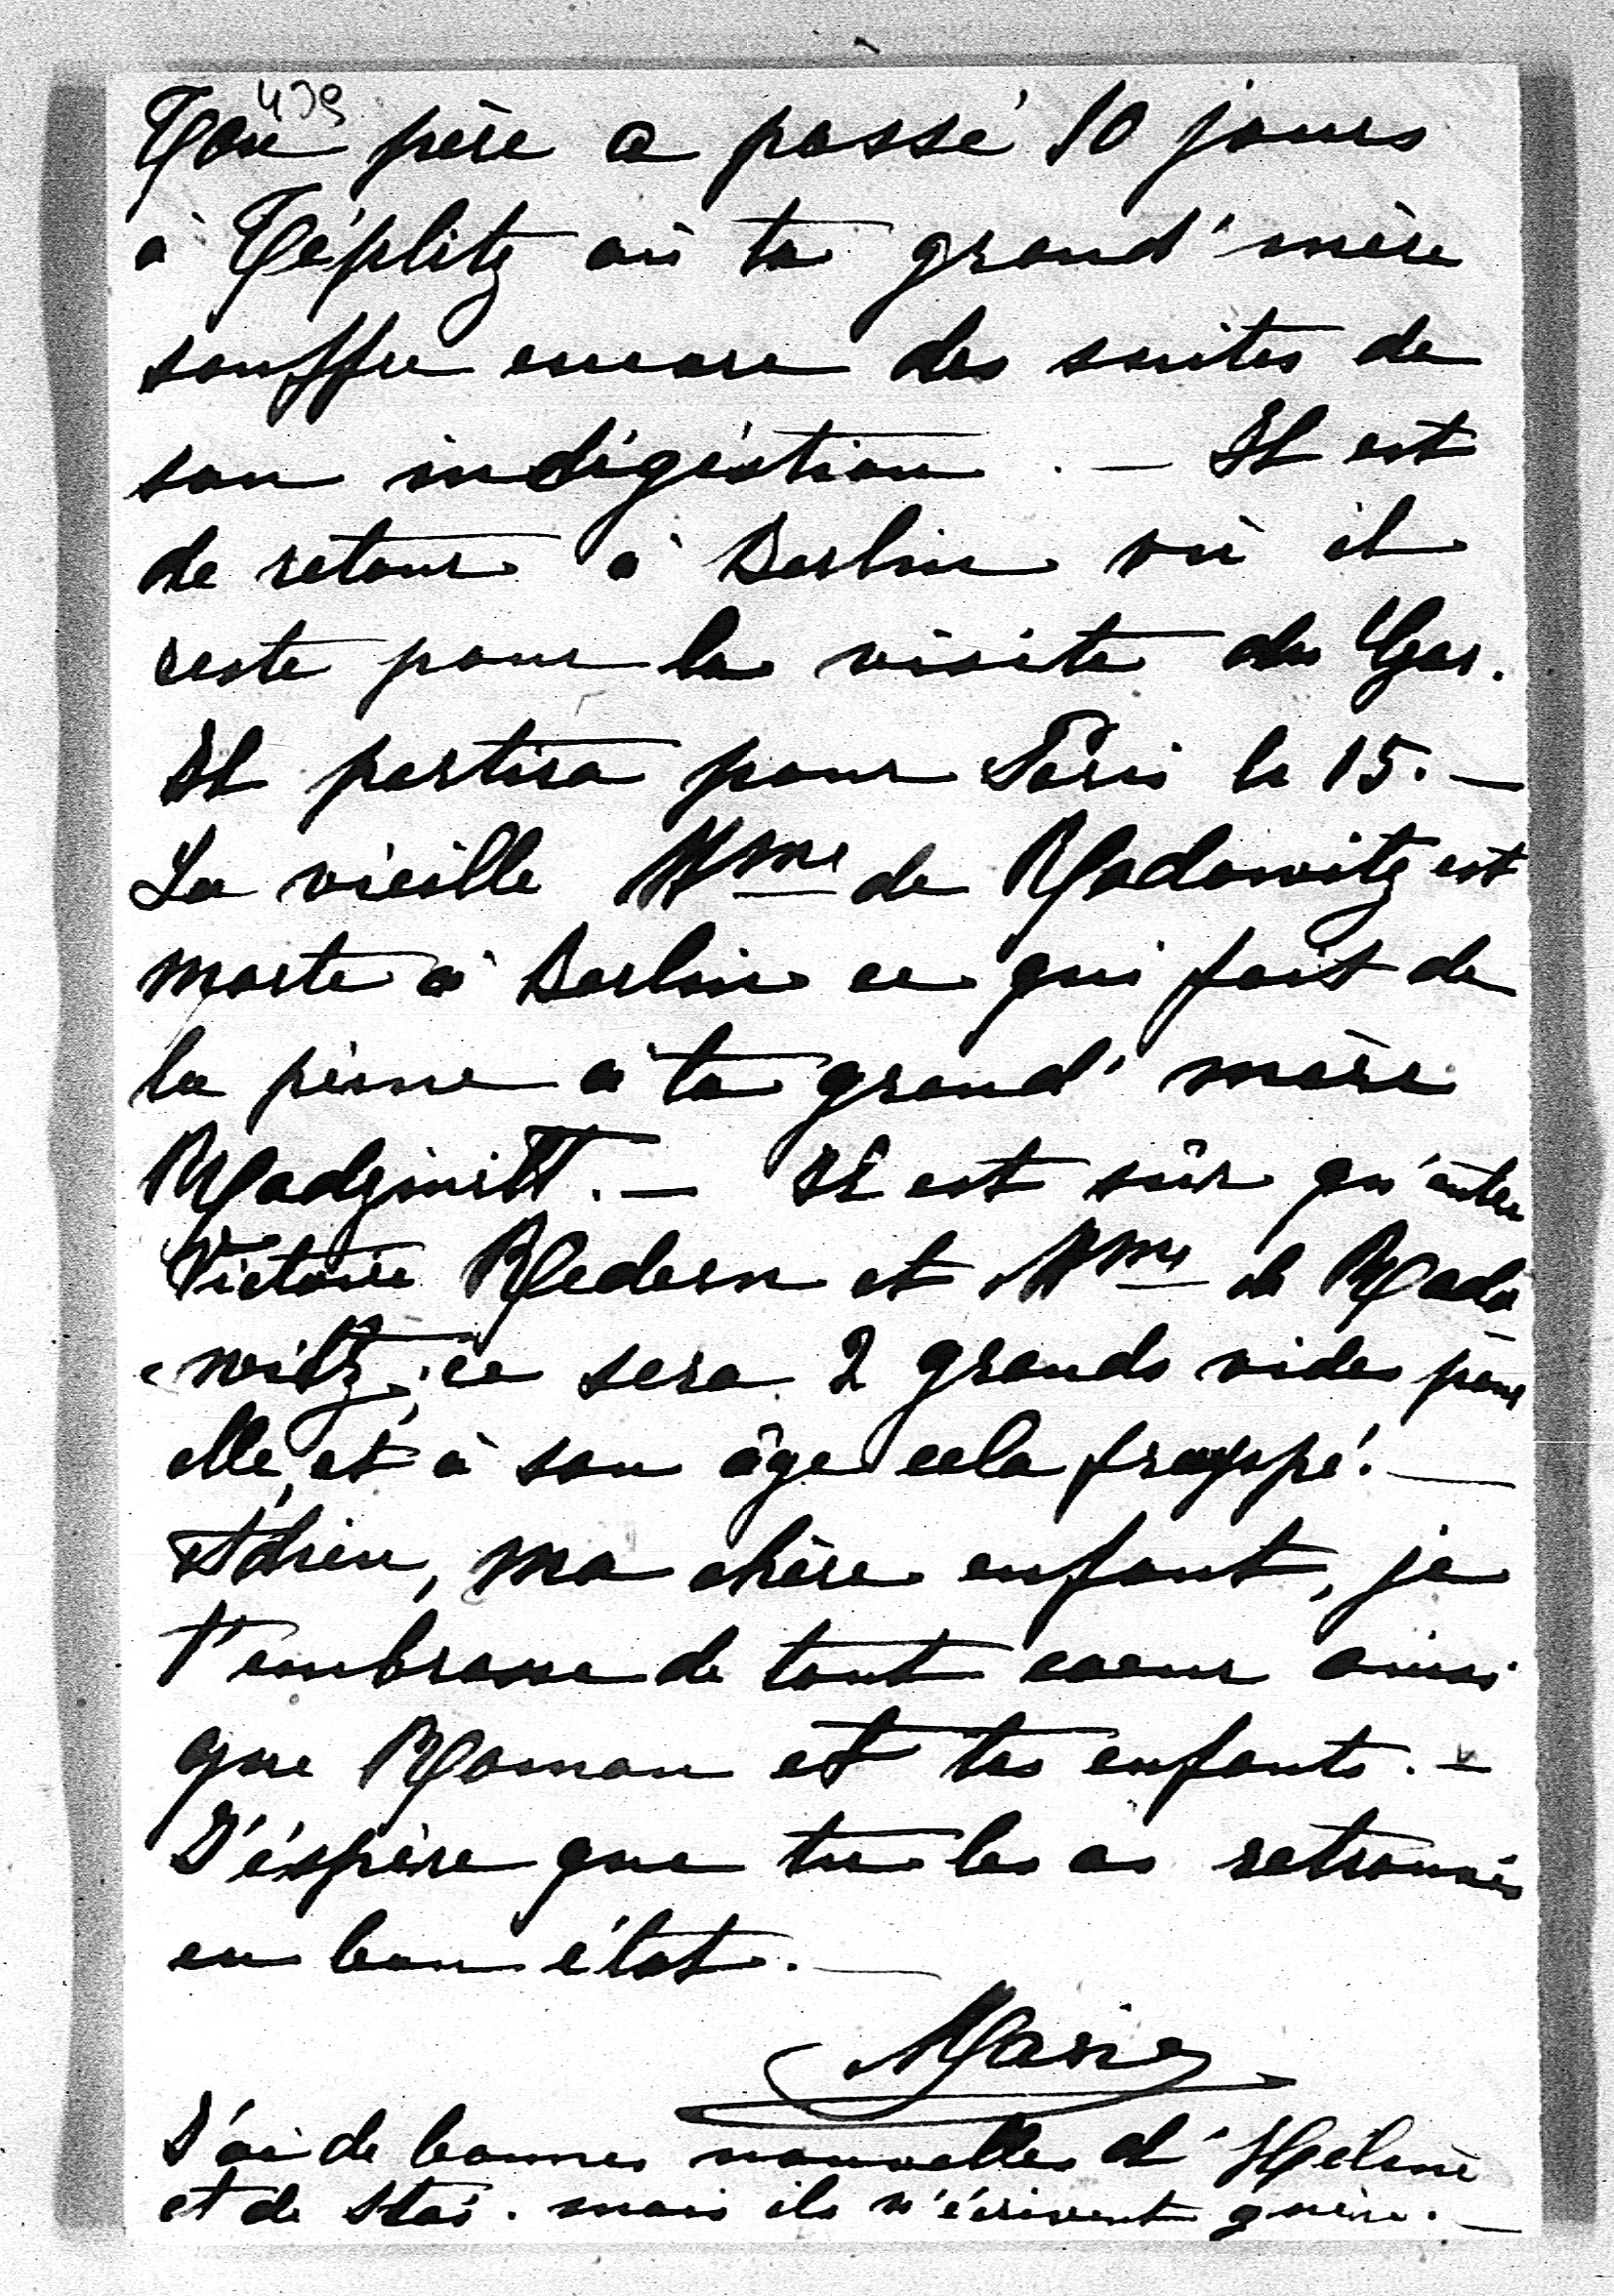 439
Ton père a passé 10 jours
à Téplitz où ta grand'mère
souffre encore des suites de
son indigéstion. — Il est
de retour à Berlin où il
reste pour la visite du
Il partira pour Paris le 15. —
La vieille Mme de Radowitz est
morte à Berlin ce qui fait de
la peine à ta grand'mère
Radziwill. — Il est sûr qu'entre
Victoire Redern et Mme de Rado
-witz, ce sera 2 grands vides pour
elle, et à son âge cela frappé. —
Adieu, ma chère enfant, je
t'embrasse de tout coeur ainsi
que Roman et tes enfants. —
J'éspère que tu les as retrouvés
en bon état. —
Marie
J'ai de bonnes nouvelles d'Hélène
et de Stas. mais ils n'écrivent guère. —